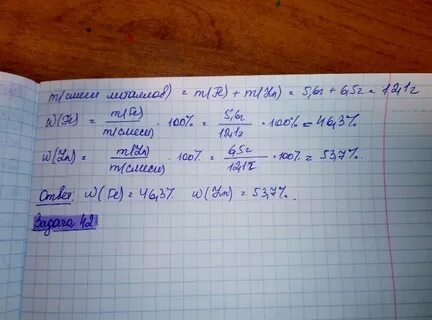 m(смеси металлов) = m(Fe) + m(Zn) = 5,6г + 6,5г = 12,1г
w(Fe) = m(Fe) / m(смеси) · 100% = 5,6г / 12,1г · 100% = 46,3%
w(Zn) = m(Zn) / m(смеси) · 100% = 6,5г / 12,1г · 100% = 53,7%
Ответ: w(Fe) = 46,3% w(Zn) = 53,7%.
Задача 42